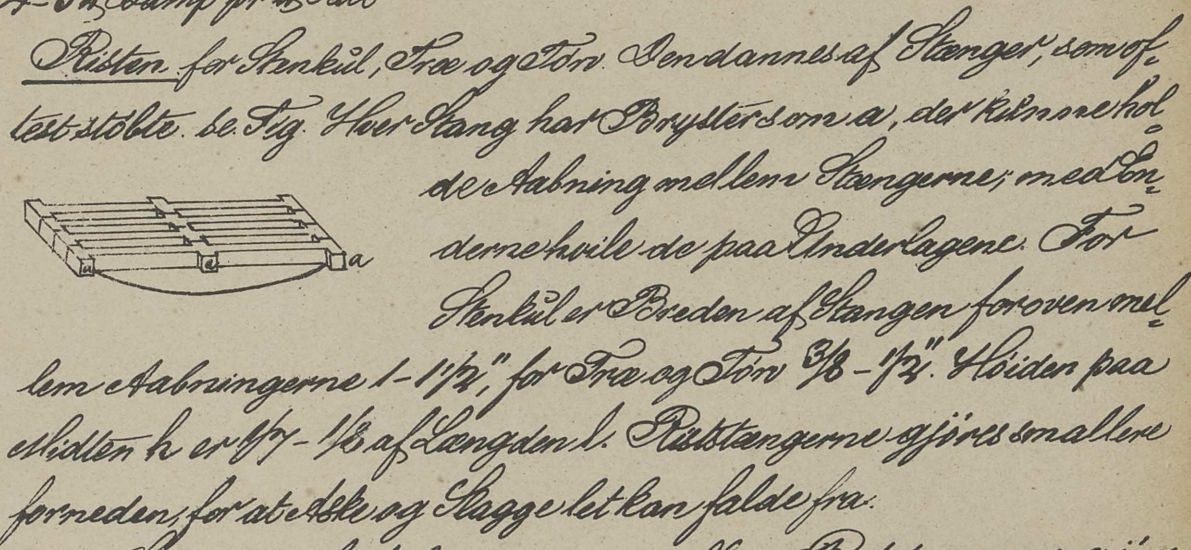 Risten for Stenkul, Træ og Törv. Den dannes af Stænger, som of-
test støbte. se Fig. Hver Stang har Bryster som a, der kunne hol-
de Aabning mellem Stængerne; med En-
derne hvile de paa Underlagene. For
a
Stenkul er Breden af Stangen foroven mel-
lem Aabningerne 1-1½", for Træ og Törv 3/8-1/2". Høiden paa
Midten h er 1/7-1/8 af Længden l. Riststængerne gjöres smallere
forneden, for at Aske og Slagge let kan falde fra.